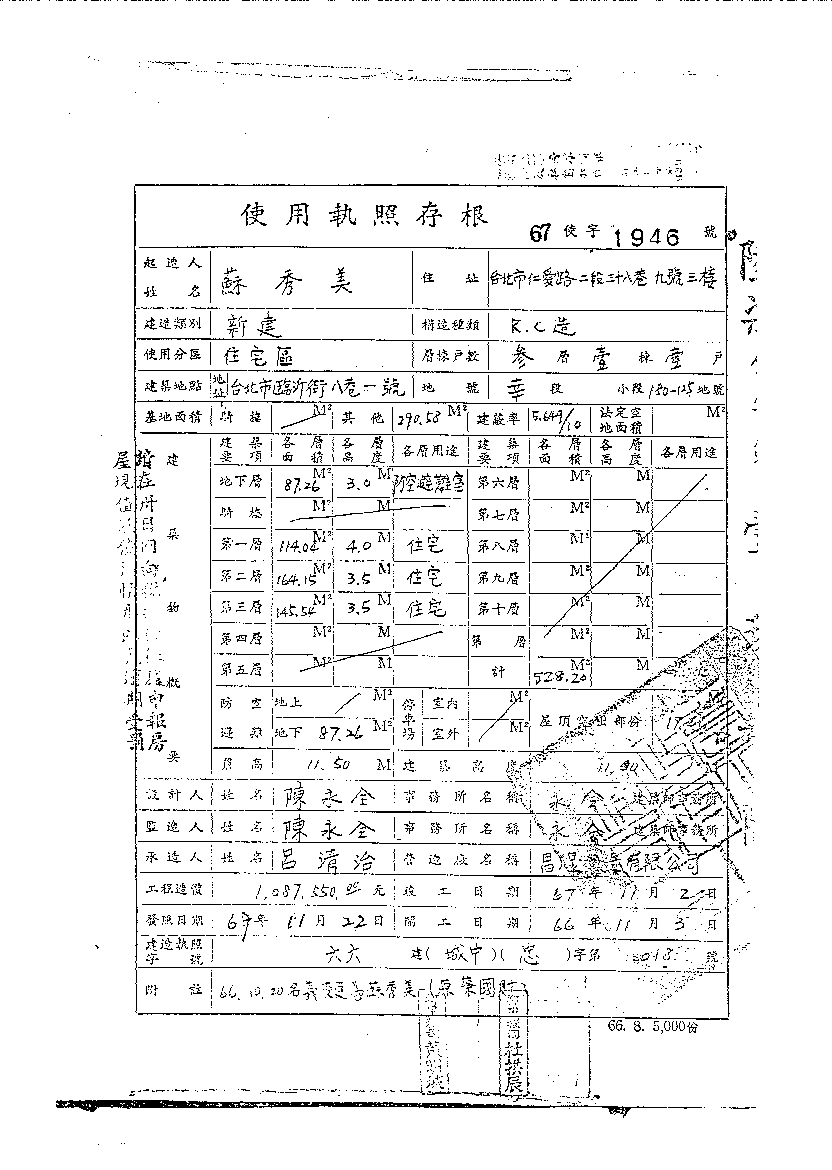 使用執照存根
67 使字 1946 號
起造人姓名 蘇秀美 住址 台北市仁愛路二段三十八巷九號三樓
建造類別 新建 構造種類 R.C造
使用分區 住宅區 層棟戶數 參層壹棟壹戶
建築地點 地址 台北市臨沂街八巷一號 地號 幸段 小段 180-125 地號
基地面積 騎樓 M² 其他 290.58 M² 建蔽率 5.649/10 法定空地面積 M²
建築要項 各層面積 各層高度 各層用途 建築要項 各層面積 各層高度 各層用途
地下層 87.26 M² 3.0 M 防空避難室 第六層 M² M
騎樓 M² M 第七層 M² M
第一層 114.04 M² 4.0 M 住宅 第八層 M² M
第二層 164.15 M² 3.5 M 住宅 第九層 M² M
第三層 145.54 M² 3.5 M 住宅 第十層 M² M
第四層 M² M 第 層 M² M
第五層 M² M 計 528.20 M² M
建築物概要
防空避難 地上 M² 停車場 室內 M² 屋頂突出部份
地下 87.26 M² 室外 M²
簷高 11.50 M 建築高度
設計人 姓名 陳永全 事務所名稱 永全 建築師事務所
監造人 姓名 陳永全 事務所名稱 永全 建築師事務所
承造人 姓名 呂清治 營造廠名稱 有限公司
工程造價 1,087,550.00 元 竣工日期 67年11月2日
發照日期 67年11月22日 開工日期 66年11月3日
建造執照字號 六六 建(城中)(忠)字第 號
附註 66.10.20名義變更為蘇秀美
杜拱辰
66. 8. 5,000份